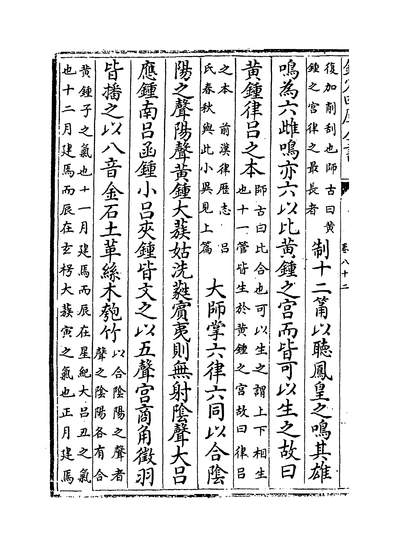 卷八十二
復加削刮也師古曰黃
鍾之宮律之最長者
制十二筩以聽鳳皇之鳴其雄
鳴為六雌鳴亦六以比黃鍾之宮而皆可以生之故曰
黃鍾律吕之本
師古曰比合也可以生之謂上下相生
也十一管皆生於黃鍾之宮故曰律吕
之本 前漢律歴志 吕
氏春秋與此小異見上篇
大師掌六律六同以合陰
陽之聲陽聲黃鍾大蔟姑洗蕤賓夷則無射陰聲大吕
應鍾南吕函鍾小吕夾鍾皆文之以五聲宮商角徵羽
皆播之以八音金石土革絲木匏竹
以合陰陽之聲者
聲之陰陽各有合
黃鍾子之氣也十一月建焉而辰在星紀大吕丑之氣
也十二月建焉而辰在玄枵大蔟寅之氣也正月建焉